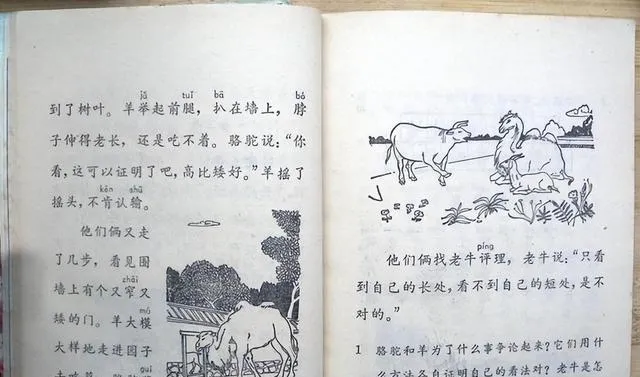 jǔ tuǐ bā bó
到了树叶。羊举起前腿，扒在墙上，脖
子伸得老长，还是吃不着。骆驼说：“你
看，这可以证明了吧，高比矮好。”羊摇了
kěn shū
摇头，不肯认输。
他们俩又走
了几步，看见围
zhǎi
墙上有个又窄又
mó
矮的门。羊大模
大样地走进园子
guì
píng
他们俩找老牛评理，老牛说：“只看
到自己的长处，看不到自己的短处，是不
对的。”
1 骆驼和羊为了什么事争论起来？它们用什
么方法各自证明自己的看法对？老牛是怎